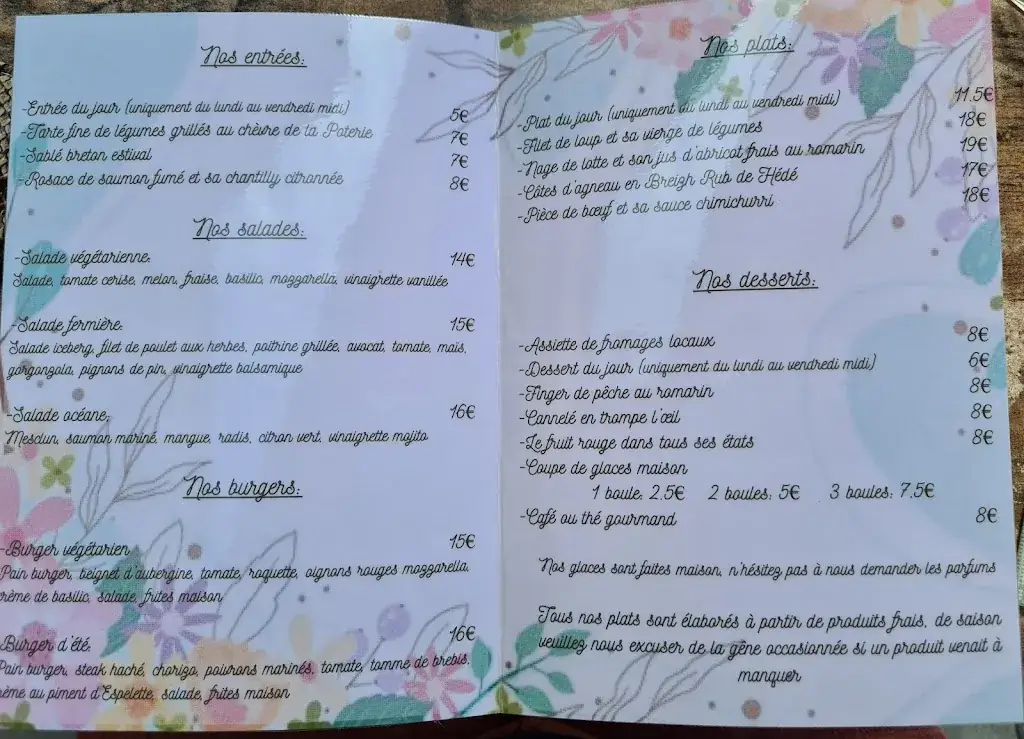 Nos entrées:
-Entrée du jour (uniquement du lundi au vendredi midi) 5€
-Tarte fine de légumes grillés au chèvre de ta Poterie 7€
-Sablé breton estival 7€
-Rosace de saumon fumé et sa chantilly citronnée 8€
Nos salades:
-Salade végétarienne: 14€
Salade, tomate cerise, melon, fraise, basilic, mozzarella, vinaigrette vanillée
-Salade fermière: 15€
Salade iceberg, filet de poulet aux herbes, poitrine grillée, avocat, tomate, maïs,
gorgonzola, pignons de pin, vinaigrette balsamique
-Salade océane: 16€
Mesclun, saumon mariné, mangue, radis, citron vert, vinaigrette mojito
Nos burgers:
-Burger végétarien 15€
Pain burger, beignet d'aubergine, tomate, roquette, oignons rouges mozzarella,
rème de basilic, salade, frites maison
Burger d'été: 16€
Pain burger, steak haché, chorizo, poivrons marinés, tomate, tomme de brebis,
ème au piment d'Espelette, salade, frites maison
Nos plats:
-Plat du jour (uniquement du lundi au vendredi midi) 11.5€
-Filet de loup et sa vierge de légumes 18€
-Nage de lotte et son jus d'abricot frais au romarin 19€
-Côtes d'agneau en Breizh Rub de Hédé 17€
-Pièce de bœuf et sa sauce chimichurri 18€
Nos desserts:
-Assiette de fromages locaux 8€
-Dessert du jour (uniquement du lundi au vendredi midi) 6€
-Finger de pêche au romarin 8€
-Cannelé en trompe l'œil 8€
-Le fruit rouge dans tous ses états 8€
-Coupe de glaces maison
1 boule: 2.5€ 2 boules: 5€ 3 boules: 7.5€
-Café ou thé gourmand 8€
Nos glaces sont faites maison, n'hésitez pas à nous demander les parfums
Tous nos plats sont élaborés à partir de produits frais, de saison
veuillez nous excuser de la gêne occasionnée si un produit venait à
manquer